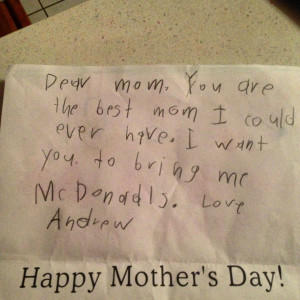 Dear mom. You are
the best mom I could
ever have. I want
you. to bring me
McDonadls. Love
Andrew
Happy Mother's Day!